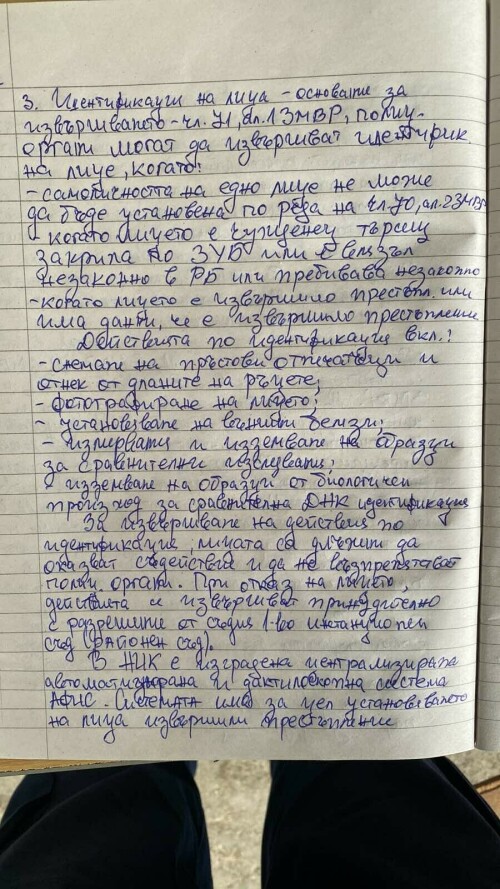 3. Идентификация на лица - основание за
извършването - чл. 71, ал. 1 ЗМВР, полиц.
органи могат да извършват идентифик.
на лице, когато:
- самоличността на едно лице не може
да бъде установена по реда на чл. 70, ал. 2 ЗМВР
- когато лицето е чужденец търсещ
закрила по ЗУБ или е влязъл
незаконно в РБ или пребивава незаконно
- когато лицето е извършило престъпл. или
има данни, че е извършило престъпление
Действията по идентификация вкл.:
- снемане на пръстови отпечатъци и
отпек от дланите на ръцете;
- фотографиране на лицето;
- установяване на външни белези;
- измервания и изземване на образци
за сравнителни изследвания;
- изземване на образци от биологичен
произход за сравнителна ДНК идентификация
За извършване на действия по
идентификация, лицата са длъжни да
оказват съдействие и да не възпрепятстват
полиц. органи. При отказ на лицето,
действията се извършват принудително
с разрешение от съдия 1-во инстанционен
съд (районен съд).
В НИК е изградена централизирана
автоматизирана и дактилоскопна система
АФИС. Системата има за цел установяването
на лица извършили престъпление